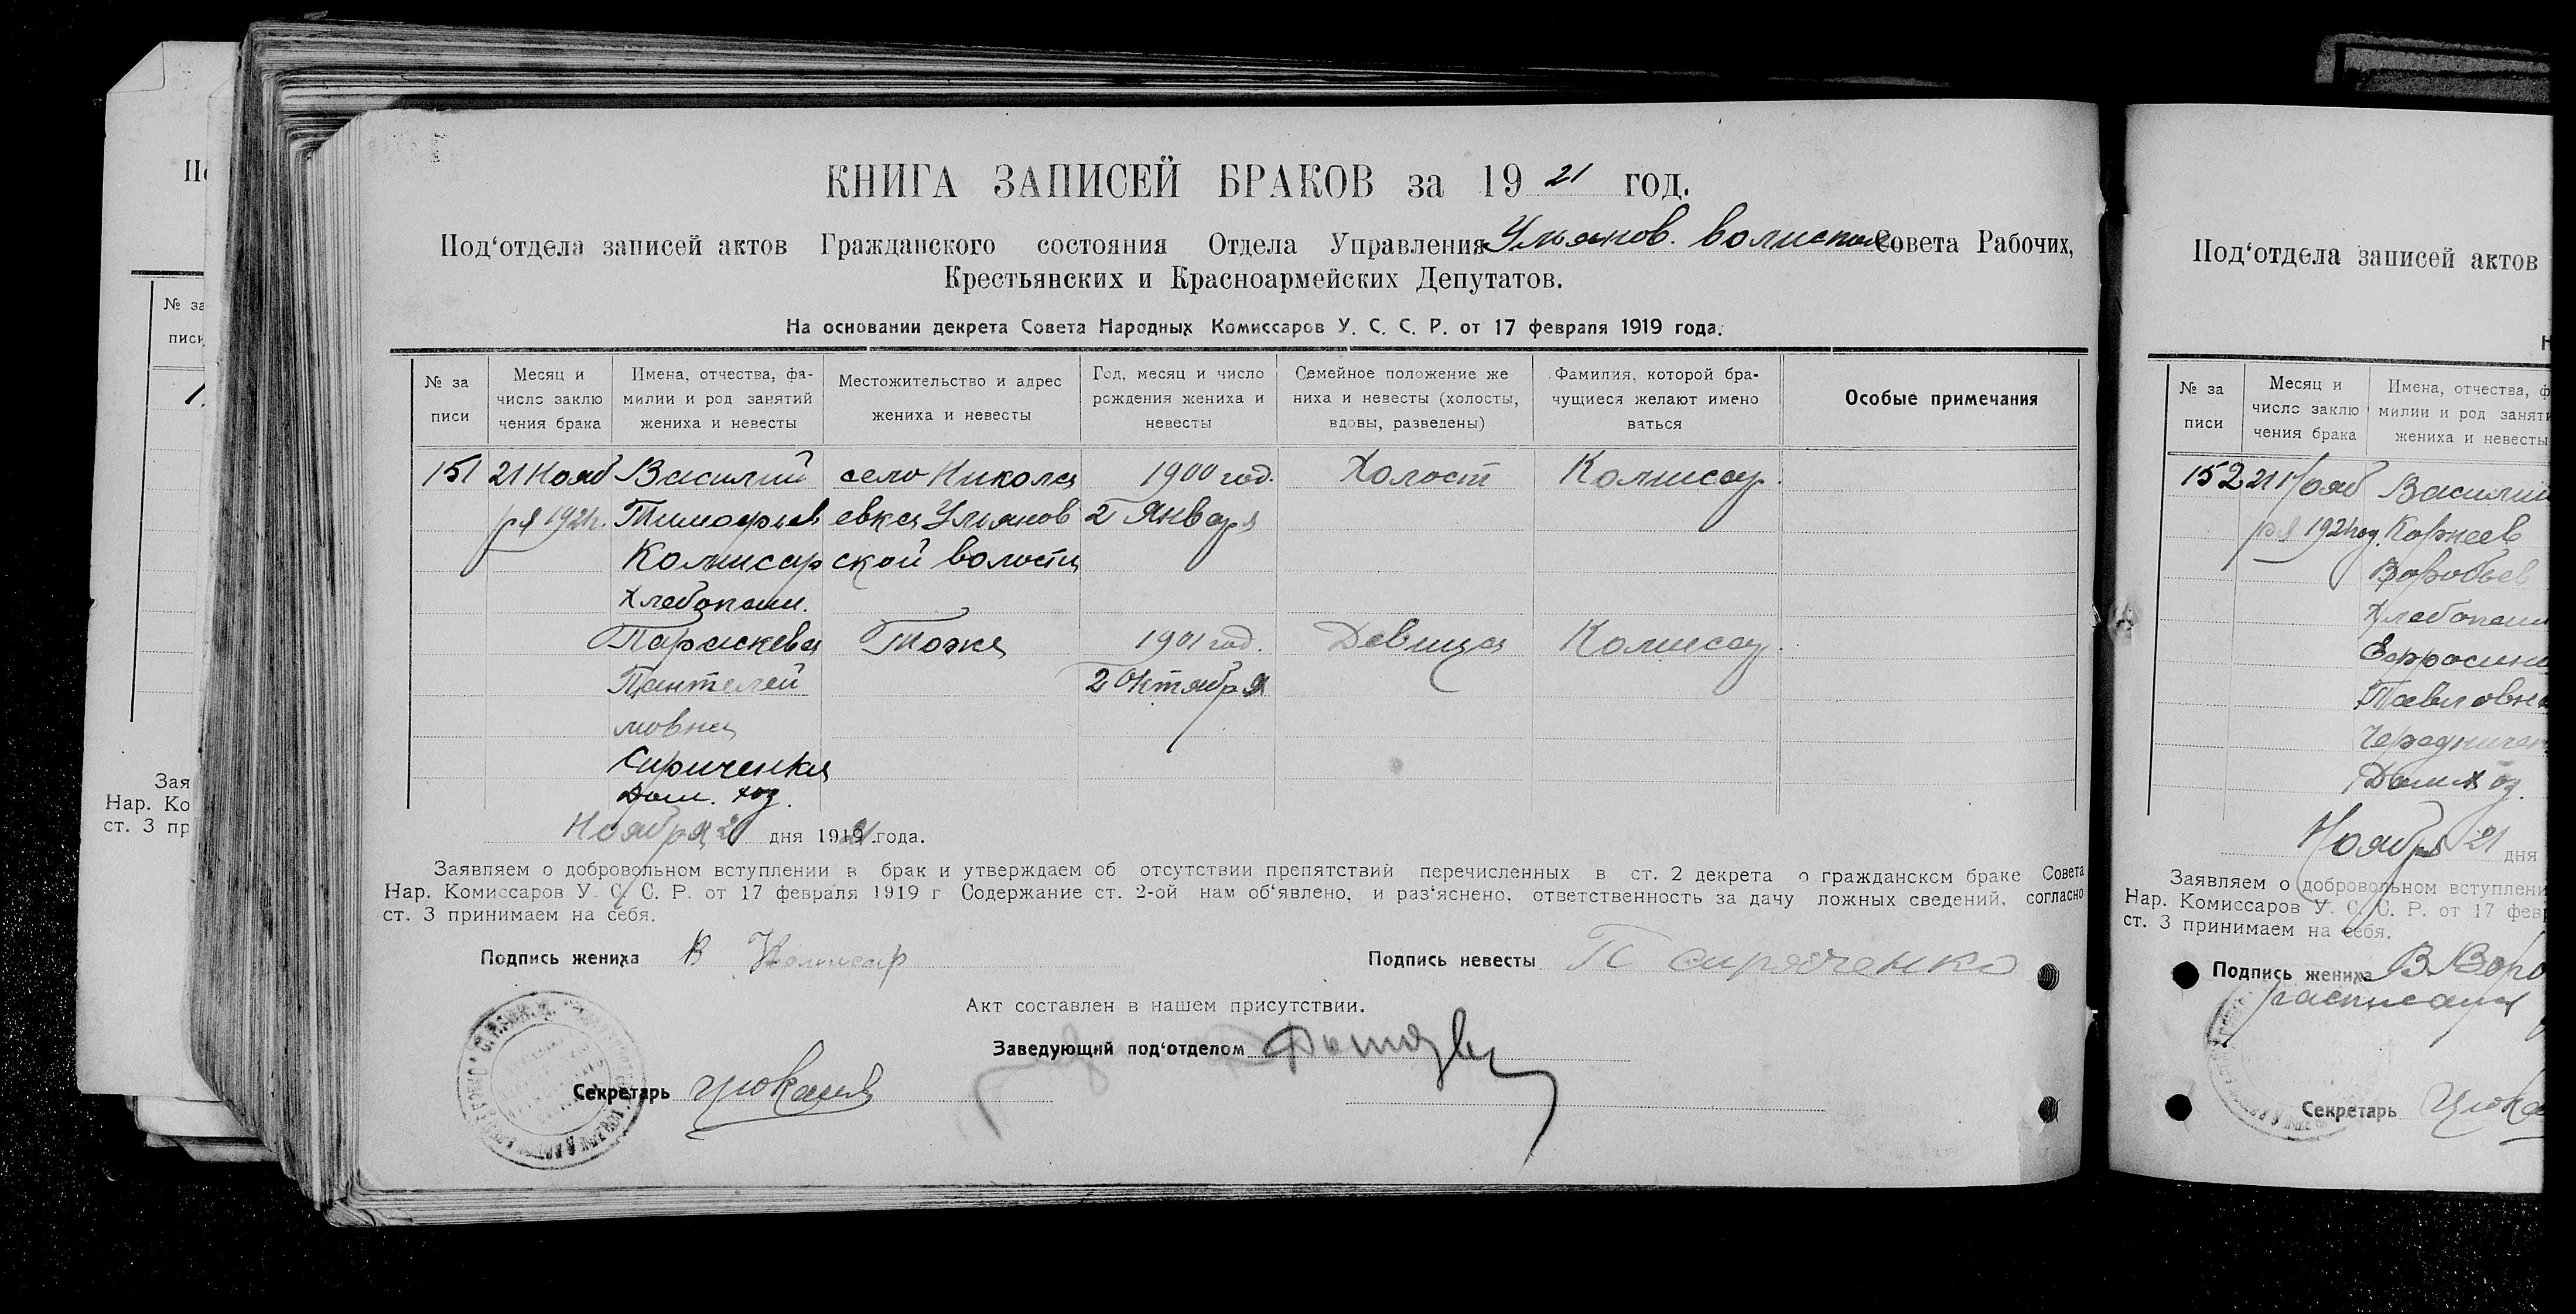 КНИГА ЗАПИСЕЙ БРАКОВ за 1921 год.
Под‘отдела записей актов Гражданского состояния Отдела Управления Ульянов. Совета Рабочих,
Крестьянских и Красноармейских Депутатов.
На основании декрета Совета Народных Комиссаров У. С. С. Р. от 17 февраля 1919 года.
№ за писи
Месяц и число заклю чения брака
Имена, отчества, фа- милии и род занятий жениха и невесты
Местожительство и адрес жениха и невесты
Год, месяц и число рождения жениха и невесты
Семейное положение же ниха и невесты (холосты, вдовы, разведены)
Фамилия, которой бра- чущиеся желают имено ваться
Особые примечания
151 21 Нояб Василий село Никола 1900 год. Холост Комисар.
ря 1921г. Тимофиев евка Ульянов 2 Января
Комисар ской волости
Хлебопаш.
Параскева Тоже 1901 год. Девица Комисар.
Пантелей 2 Октября
мовна
Сириченка
Дом. хоз.
Ноября 21 дня 1921 года.
Заявляем о добровольном вступлении в брак и утверждаем об отсутствии препятствий перечисленных в ст. 2 декрета о гражданском браке Совета
Нар. Комиссаров У. С. С. Р. от 17 февраля 1919 г Содержание ст. 2-ой нам об‘явлено, и раз‘яснено, ответственность за дачу ложных сведений, согласно
ст. 3 принимаем на себя.
Подпись жениха В Комисар
Подпись невесты П
Акт составлен в нашем присутствии.
Заведующий под‘отделом
Секретарь
№ за
писи
Зая
Нар. Ко
ст. 3 пр
Под‘отдела записей актов
№ за писи
Месяц и число заклю чения брака
Имена, отчества, ф милии и род заняти жениха и невесты
152 21 Нояб Василий
ря 1921 год. Корнеев
Воробьев
Хлебопаш
Ефросин
Павловна
Чередничен
Дом. хоз.
Ноября 21 дня
Заявляем о добровольном вступлени
Нар. Комиссаров У. С. С. Р. от 17 фев
ст. 3 принимаем на себя.
Подпись жениха В Воро
Секретарь